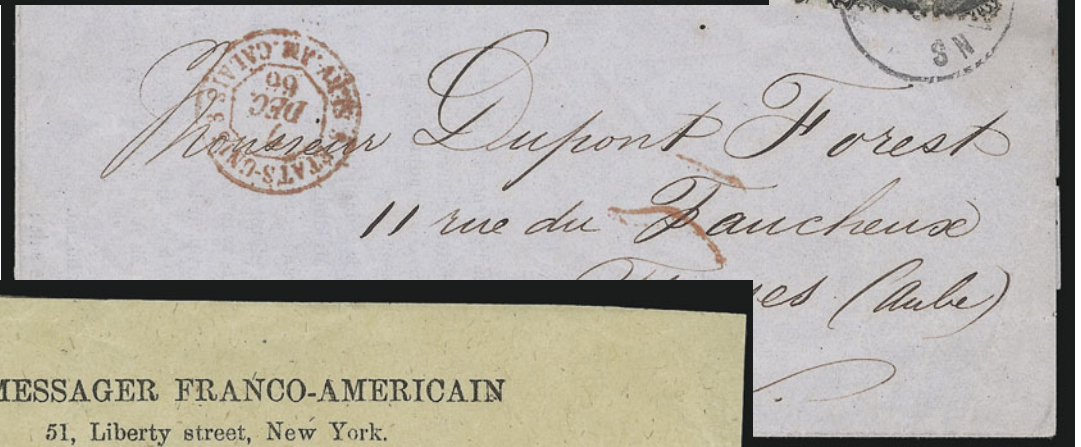 ANS
ETATS-UNIS SERV. AM. CALAIS
DEC.
66
Monsieur Dupont Forest
11 rue du Faucheux
(Aube)
MESSAGER FRANCO-AMERICAIN
51, Liberty street, New York.